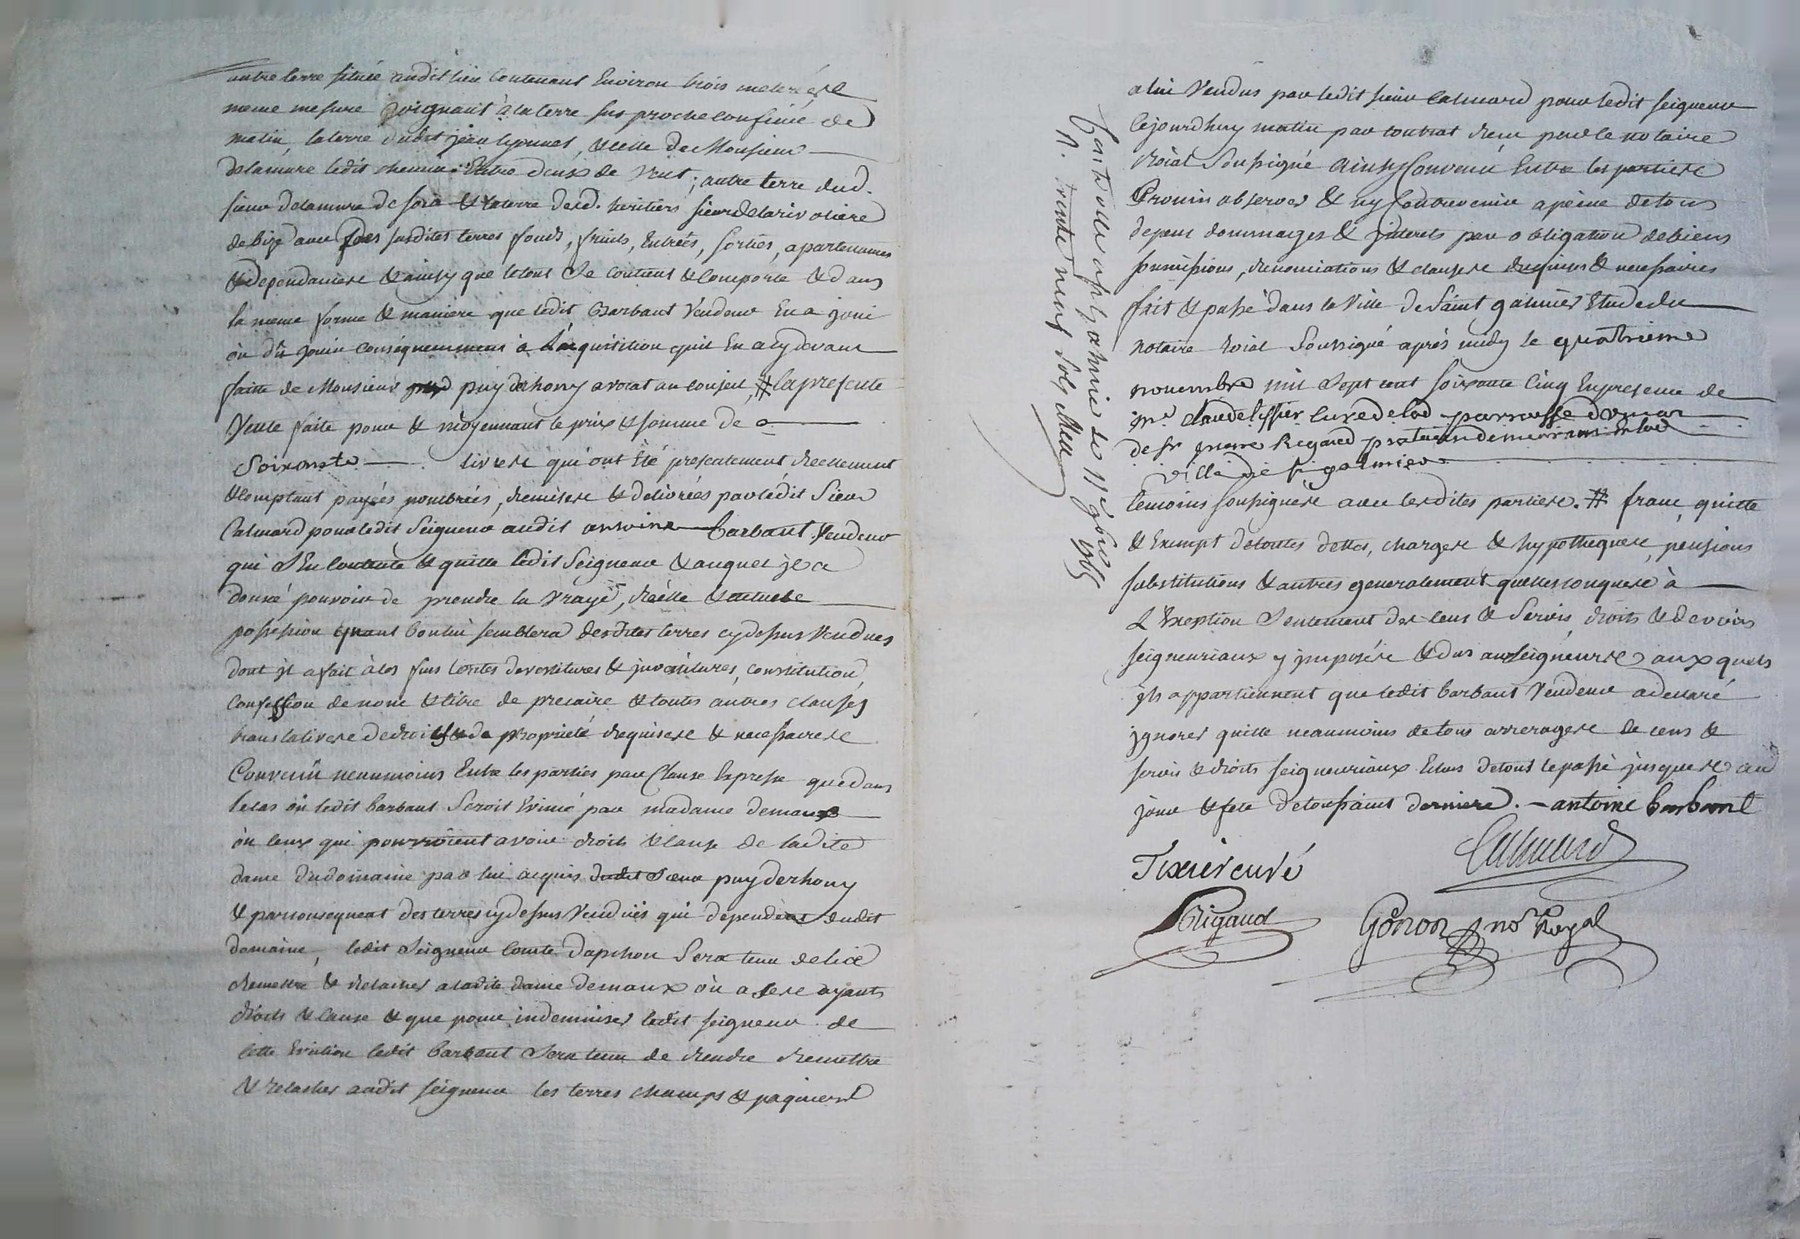 autre terre située audit lieu contenant Environ trois meterées
meme mesure joignant à la terre sus proche confinée de
matin, la terre dudit jean lyonnet, & celle de Monsieur
delamure ledit chemin Entre deux de vent; autre terre dud.
sieur delamure de soir & la terre desd. heritiers sieur delarivoliere
de bize avec fonds, fruits, Entrées, sorties, apartenances
& dependances & ainsy que le tout Se contient & comporte & dans
la meme forme & maniere que ledit Barbant Vendeur En a joui
où dû jouir consequemment à L'acquisition quil En a cy devant
faitte de Monsieur puy dehony avocat au conseil, # la presente
Vente faite pour & moyennant le prix & somme de
Soixante livres qui ont Été presentement réellement
& comptant payées, nombrées, remises & delivrées par ledit Sieur
Calmard pour ledit Seigneur audit antoine Barbant Vendeur
qui S'En contente & quitte ledit Seigneur & auquel il a
donné pouvoir de prendre la vraye, réelle & actuelle
possession quant bon lui semblera desdites terres cy dessus vendues
dont il a fait à les fins toutes devestitures & investitures, constitution,
confession de nom & titre de precaire & toutes autres clauses
translatives de droits & de proprieté requises & necessaires
Convenu neanmoins Entre les parties par Clause Expresse que dans
le cas où ledit barbant Seroit Evincé par madame demaux
où ceux qui pourroient avoir droits & cause de ladite
dame du domaine par lui acquis dudit Sieur puy dehony
& par consequent des terres cy dessus vendues qui dependent dudit
domaine, ledit Seigneur Comte dapchon Sera tenu de les
remettre & relacher a ladite dame demaux où a ses ayants
droits & cause & que pour indemniser ledit seigneur de
cette Eviction ledit barbant Sera tenu de rendre remettre
& relacher audit seigneur les terres champs & paquiers
a lui Vendus par ledit sieur Calmard pour ledit seigneur
cejourdhuy matin par contrat recu par le notaire
Roial Soussigné ainsy Convenu Entre les parties
Promis observer & ny Contrevenir a peine de tous
depens dommages & interets par obligation de biens
soumissions, renonciations & clauses requises & necessaires
fait & passé dans la ville de saint galmier Etude du
notaire roial Soussigné après midy le quatrieme
novembre mil Sept cent soixante cinq En presence de
mre Claude tissier curé de lad. parroisse
de sr pierre Rigaud praticien demeurant En lad.
ville de st galmier
temoins soussignes avec lesdites parties. # franc, quitte
& Exempt de toutes dettes, charges & hypotheques, pensions
substitutions & autres generalement quelles conques à
L'Exeption Seulement des cens & Servis, droits & devoirs
seigneuriaux y imposés & dus aux seigneurs aux quels
ils appartiennent que ledit barbant Vendeur a declaré
ignorer quitte neanmoins de tous arrerages de cens &
servis & droits seigneuriaux Echus de tout le passé jusques au
jour & fete de toussaint derniere. antoine barbant
Calmard
Tixier curé
Rigaud
Gonon nore Royal
Controllé a st galmier le 11e 9bre 1765
R. trente neuf sols